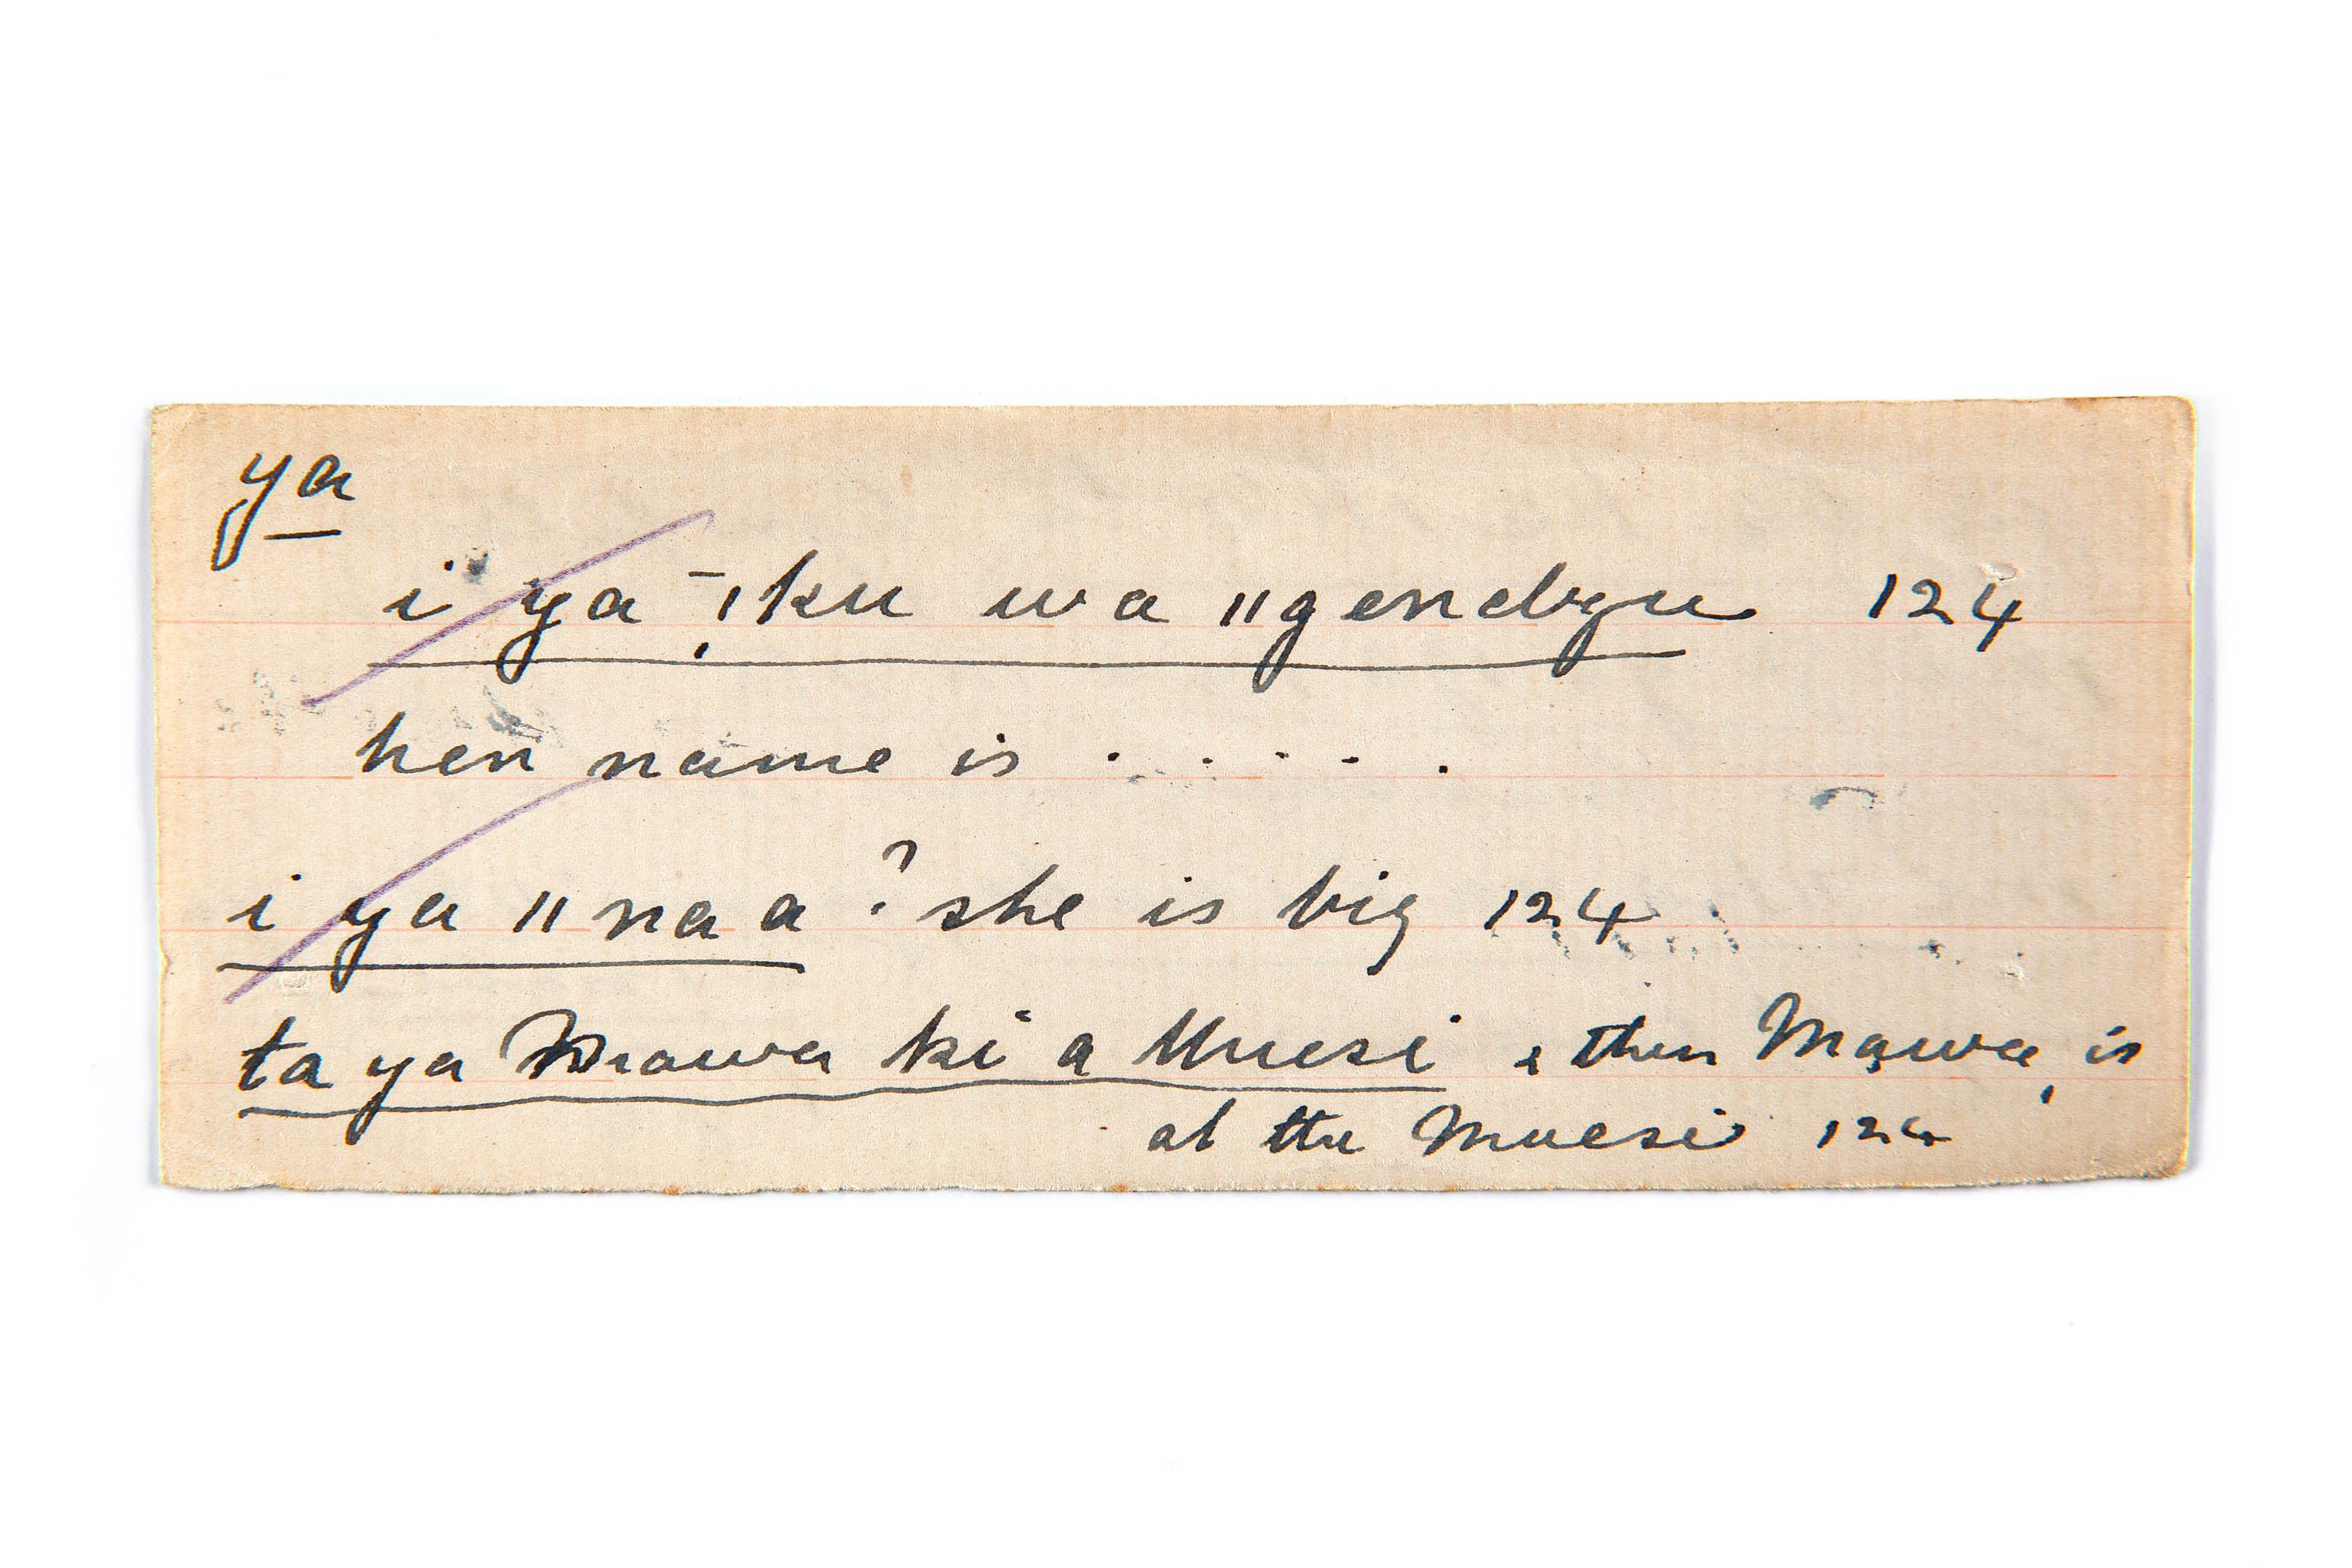 ya
i ya ¯!ku wa ǁgendzu 124
her name is . . . . .
i ya ǁna a ? she is big 124
ta ya Mawa ki a Muesi & then Mawa, is
at the Muesi 124